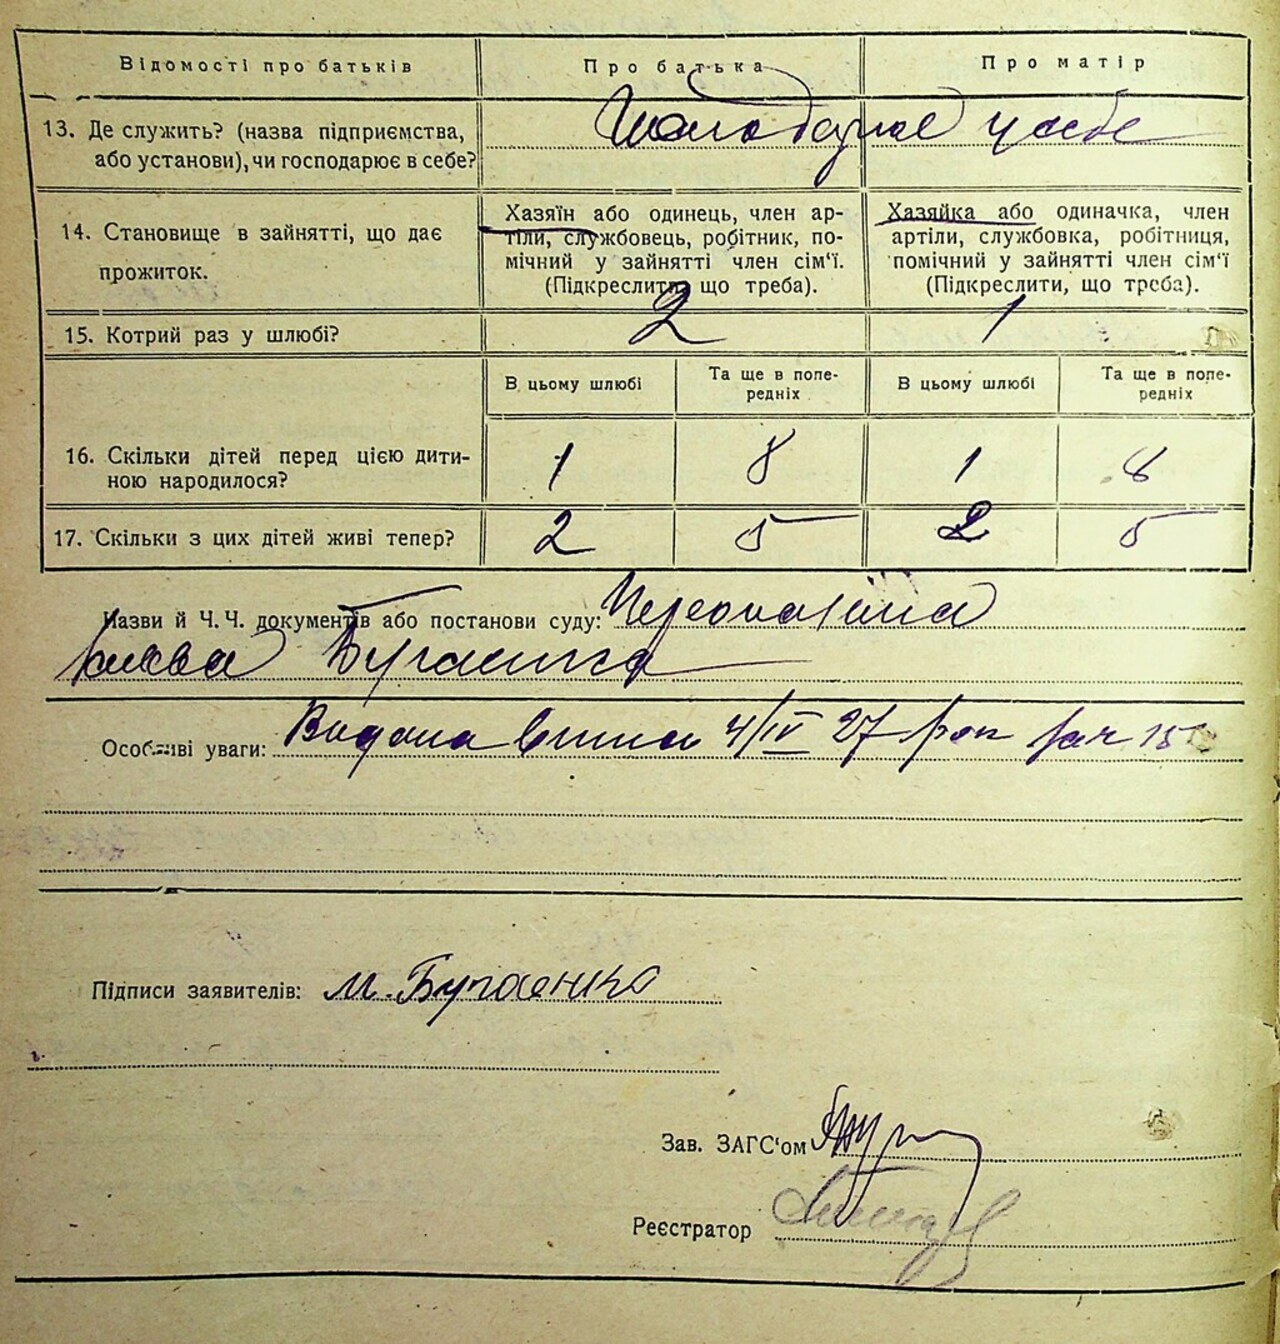 Відомості про батьків
Про батька
Про матір
13. Де служить? (назва підприємства,
або установи), чи господарює в себе?
у себе
14. Становище в зайнятті, що дає
прожиток.
Хазяїн або одинець, член ар-
тіли, службовець, робітник, по-
мічний у зайнятті член сім'ї.
(Підкреслити, що треба).
Хазяйка або одиначка, член
артіли, службовка, робітниця,
помічний у зайнятті член сім'ї
(Підкреслити, що треба).
15. Котрий раз у шлюбі?
2
1
В цьому шлюбі
Та ще в попе-
редніх
В цьому шлюбі
Та ще в попе-
редніх
16. Скільки дітей перед цією дити-
ною народилося?
1
8
1
8
17. Скільки з цих дітей живі тепер?
2
5
2
5
Назви й Ч. Ч. документів або постанови суду:
Особливі уваги: Видана 4/IV 27 рок
Підписи заявителів: М. Бугаенко
Зав. ЗАГС'ом
Реєстратор